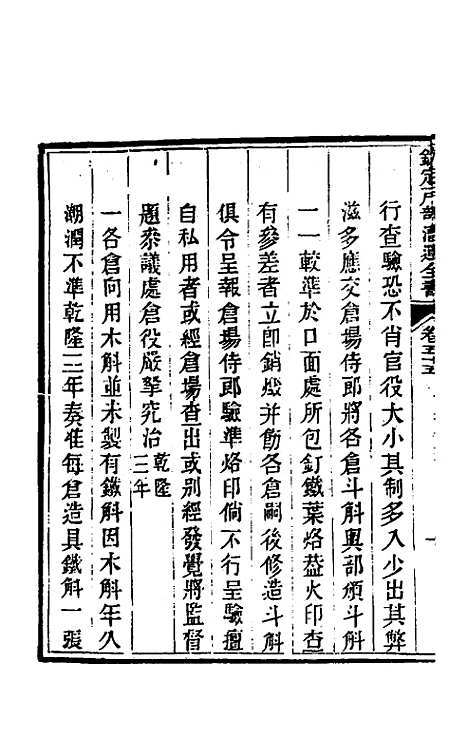 欽定戶部漕運全書
卷五十五
行查驗恐不肖官役大小其制多入少出其弊
滋多應交倉場侍郎將各倉斗斛與部頒斗斛
一一較準於口面處所包釘鐵葉烙葢火印查
有參差者立卽銷燬并飭各倉嗣後修造斗斛
俱令呈報倉場侍郎驗準烙印倘不行呈驗擅
自私用者或經倉場查出或别經發覺將監督
題叅議處倉役嚴拏究治乾隆三年
一各倉向用木斛並未製有鐵斛因木斛年久
潮潤不準乾隆三年奏准每倉造具鐵斛一張